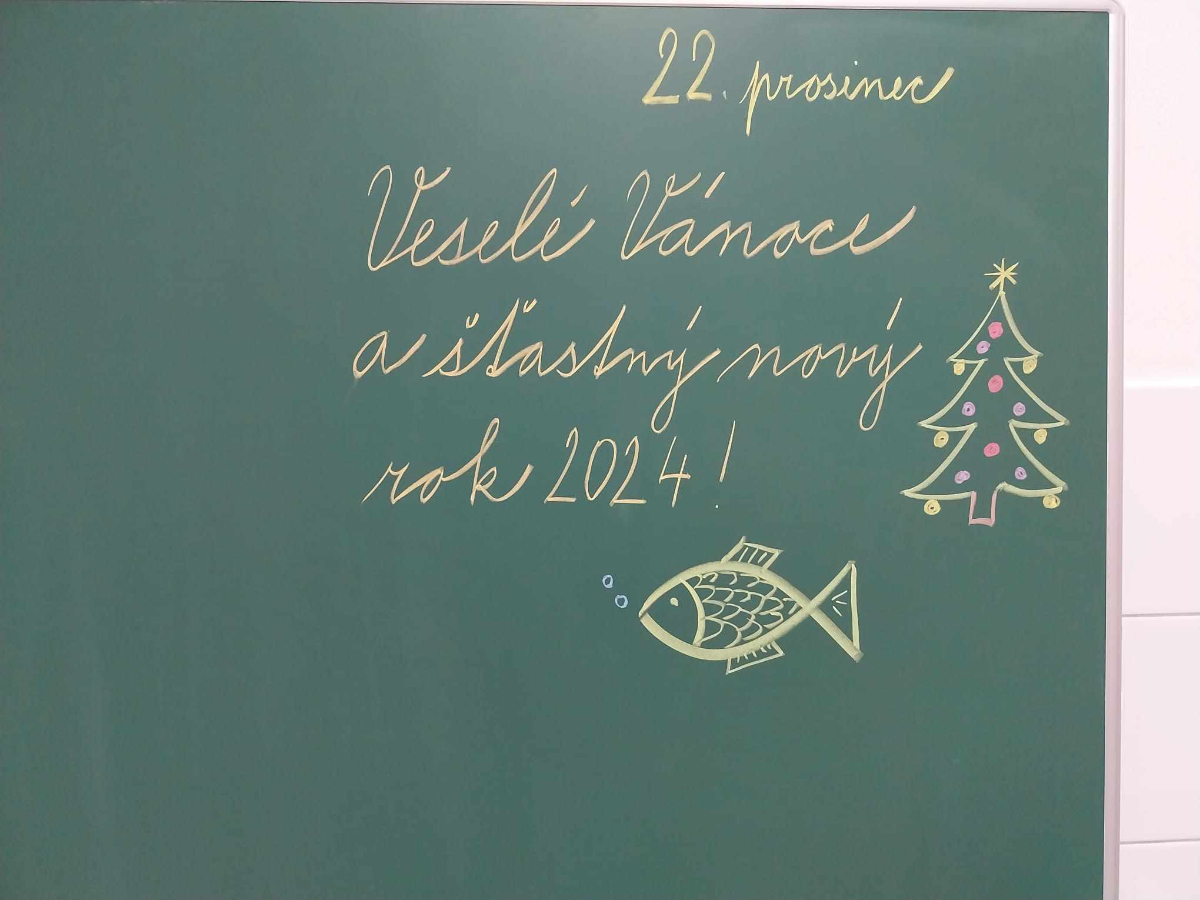 22. prosinec
Veselé Vánoce
a šťastný nový
rok 2024!